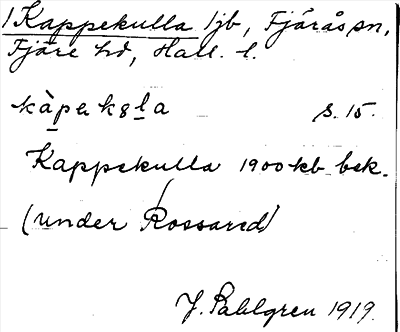 1 Kappekulla 1jb, Fjärås sn,
Fjäre hd, Hall. l.
s. 15.
Kappekulla 1900 kb bek.
(under Rossared)
J. Sahlgren 1919.